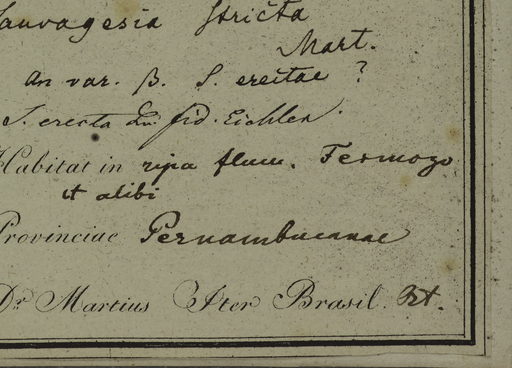 Sauvagesia stricta
Mart.
An var. β. S. erectae ?
S. erecta Lin. fid. Eichler.
Habitat in ripa flum.
et alibi
Provinciae Pernambucanae
Dr. Martius Iter Brasil.